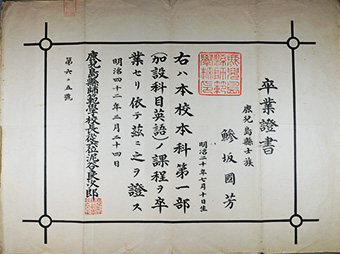 卒業證書
鹿兒島縣士族
鰺坂國芳
明治二十年七月十日生
右ハ本校本科第一部
(加設科目英語)ノ課程ヲ卒
業セリ依テ茲ニ之ヲ證ス
明治四十二年三月二十四日
鹿兒島縣師範學校長從位泥谷良次郎
第六〇五號